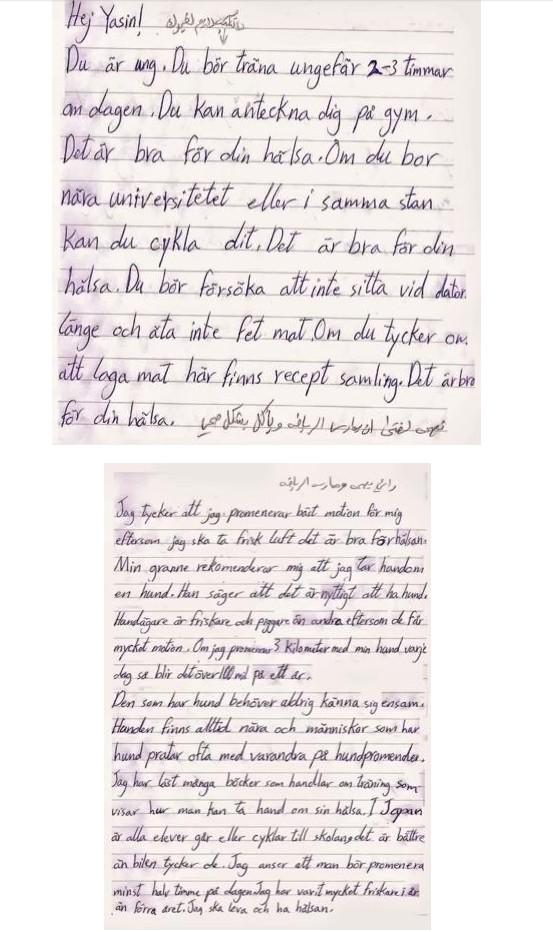 Hej Yasin!
Du är ung. Du bör träna ungefär 2-3 timmar
om dagen. Du kan anteckna dig på gym.
Det är bra för din hälsa. Om du bor
nära universitetet eller i samma stan
kan du cykla dit. Det är bra för din
hälsa. Du bör försöka att inte sitta vid dator
länge och äta inte fet mat. Om du tycker om
att laga mat här finns recept samling. Det är bra
för din hälsa.
Jag tycker att jag promenerar bäst motion för mig
eftersom jag ska ta frisk luft det är bra för hälsan.
Min granne rekomenderar mig att jag tar handom
en hund. Han säger att det är nyttigt att ha hund.
Hundägare är friskare och piggare än andra eftersom de får
mycket motion. Om jag promenar 3 kilometer med min hund varje
dag så blir det över mil på ett år.
Den som har hund behöver aldrig känna sig ensam.
Hunden finns alltid nära och människor som har
hund pratar ofta med varandra på hundpromender.
Jag har läst många böcker som handlar om träning som
visar hur man kan ta hand om sin hälsa. I Japan
är alla elever går eller cyklar till skolan det är bättre
än bilen tycker de. Jag anser att man bör promenera
minst halv timme på dagen Jag har varit mycket friskare i år
än förra året. Jag ska leva och ha hälsan.